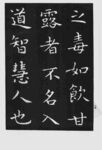 之毒如飲甘
露者不名入
道智慧人也